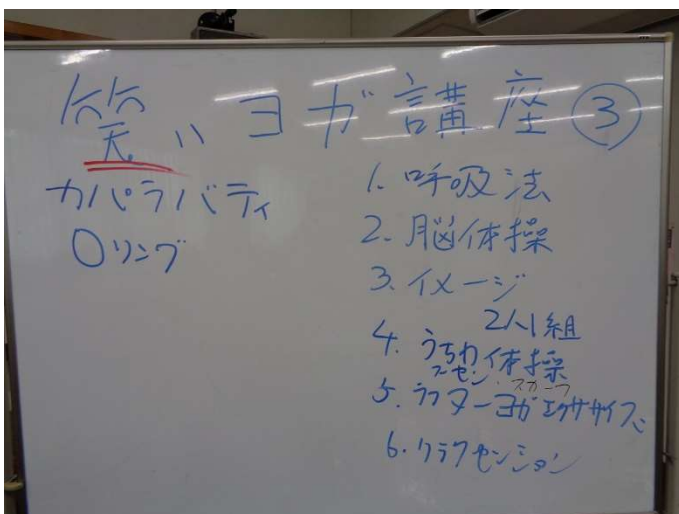 笑いヨガ講座③
カパラバティ
Oリング
1. 呼吸法
2. 脳体操
3. イメージ
2人1組
4. うちわ体操
フーセン・スカーフ
5. ラフターヨガエクササイズ
6. リラクセンション